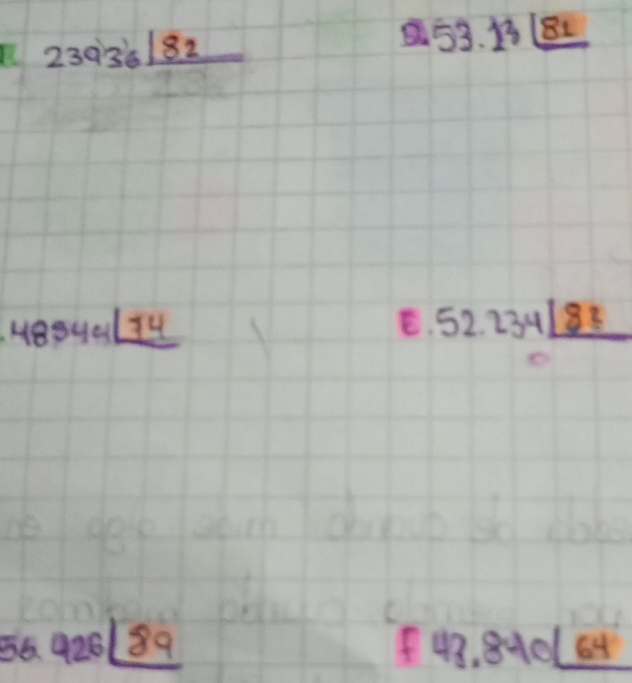 23936 82
D. 53.13 82
48944 74
E. 52.234 82
56.926 89
F 43.840 64